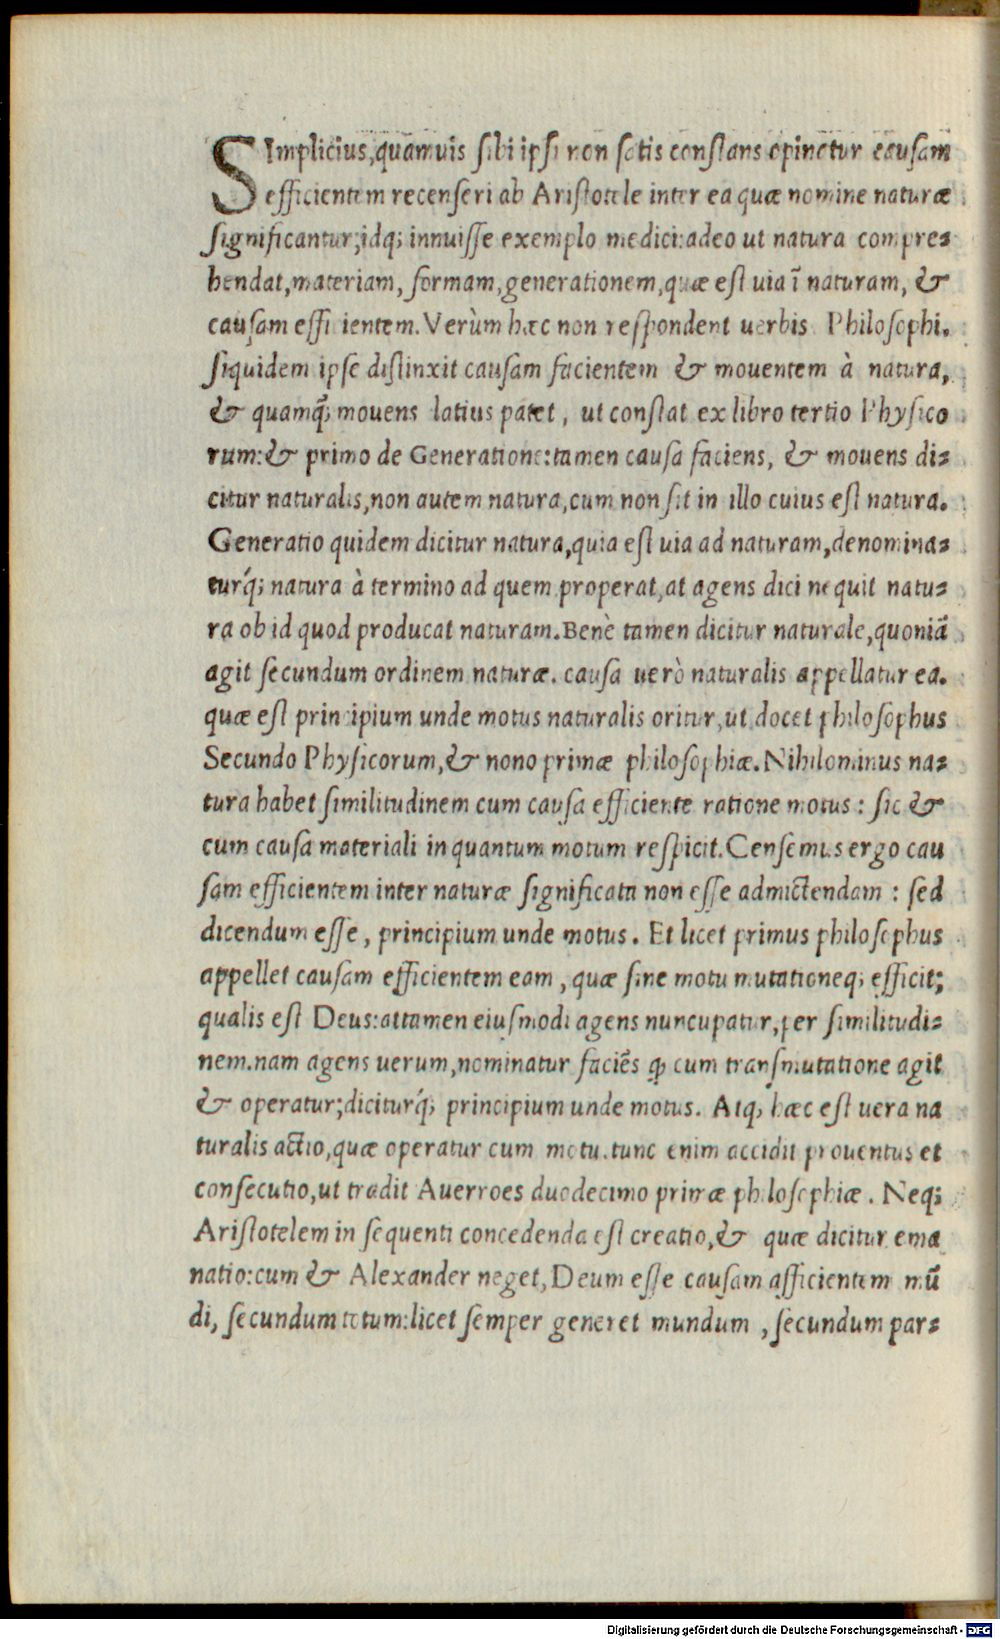 SImplicius, quamuis sibi ipsi non satis constans opinetur causam
efficientem recenseri ab Aristotele inter ea quæ nomine naturæ
significantur; idq; innuisse exemplo medici: adeo ut natura compre⸗
hendat, materiam, formam, generationem, quæ est uia ī naturam, &
causam effi ientem. Verùm hæc non respondent uerbis Philosophi.
siquidem ipse distinxit causam facientem & mouentem à natura,
& quamq̃; mouens latius patet, ut constat ex libro tertio Physico
rum: & primo de Generatione: tamen causa faciens, & mouens di⸗
citur naturalis, non autem natura, cum non sit in illo cuius est natura.
Generatio quidem dicitur natura, quia est uia ad naturam, denomina⸗
turq́; natura à termino ad quem properat, at agens dici nequit natu⸗
ra ob id quod producat naturam. Benè tamen dicitur naturale, quoniā
agit secundum ordinem naturæ. causa uerò naturalis appellatur ea.
quæ est principium unde motus naturalis oritur, ut docet philosophus
Secundo Physicorum, & nono primæ philosophiæ. Nihilominus na⸗
tura habet similitudinem cum causa efficiente ratione motus: sic &
cum causa materiali inquantum motum respicit. Censemus ergo cau
sam efficientem inter naturæ significata non esse admictendam: sed
dicendum esse, principium unde motus. Et licet primus philosophus
appellet causam efficientem eam, quæ sine motu mutationeq; efficit;
qualis est Deus: attamen eiusmodi agens nuncupatur, per similitudi⸗
nem. nam agens uerum, nominatur faciēs ꝙ cum transmutatione agit
& operatur; diciturq́; principium unde motus. Atq; hæc est uera na
turalis actio, quæ operatur cum motu. tunc enim accidit prouentus et
consecutio, ut tradit Auerroes duodecimo primæ philosophiæ. Neq;
Aristotelem in sequenti concedenda est creatio, & quæ dicitur ema
natio: cum & Alexander neget, Deum esse causam afficientem mū
di, secundum totum: licet semper generet mundum, secundum par⸗
Digitalisierung gefördert durch die Deutsche Forschungsgemeinschaft - DFG